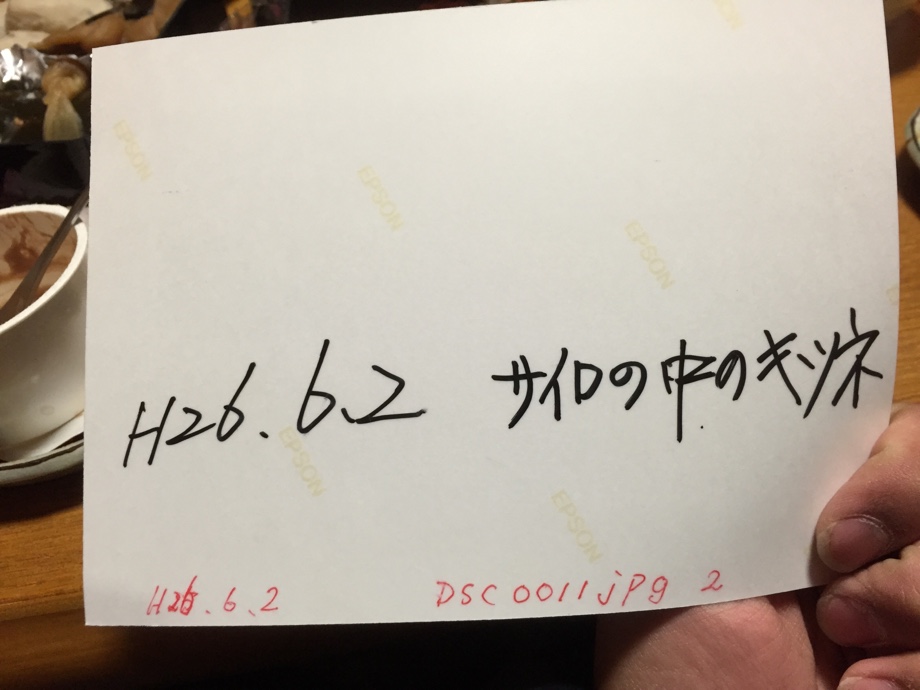 EPSON
EPSON
EPSON
EPSON
H26.6.2 サイロの中のキツネ
EPSON
EPSON
H26.6.2 DSC0011jpg 2